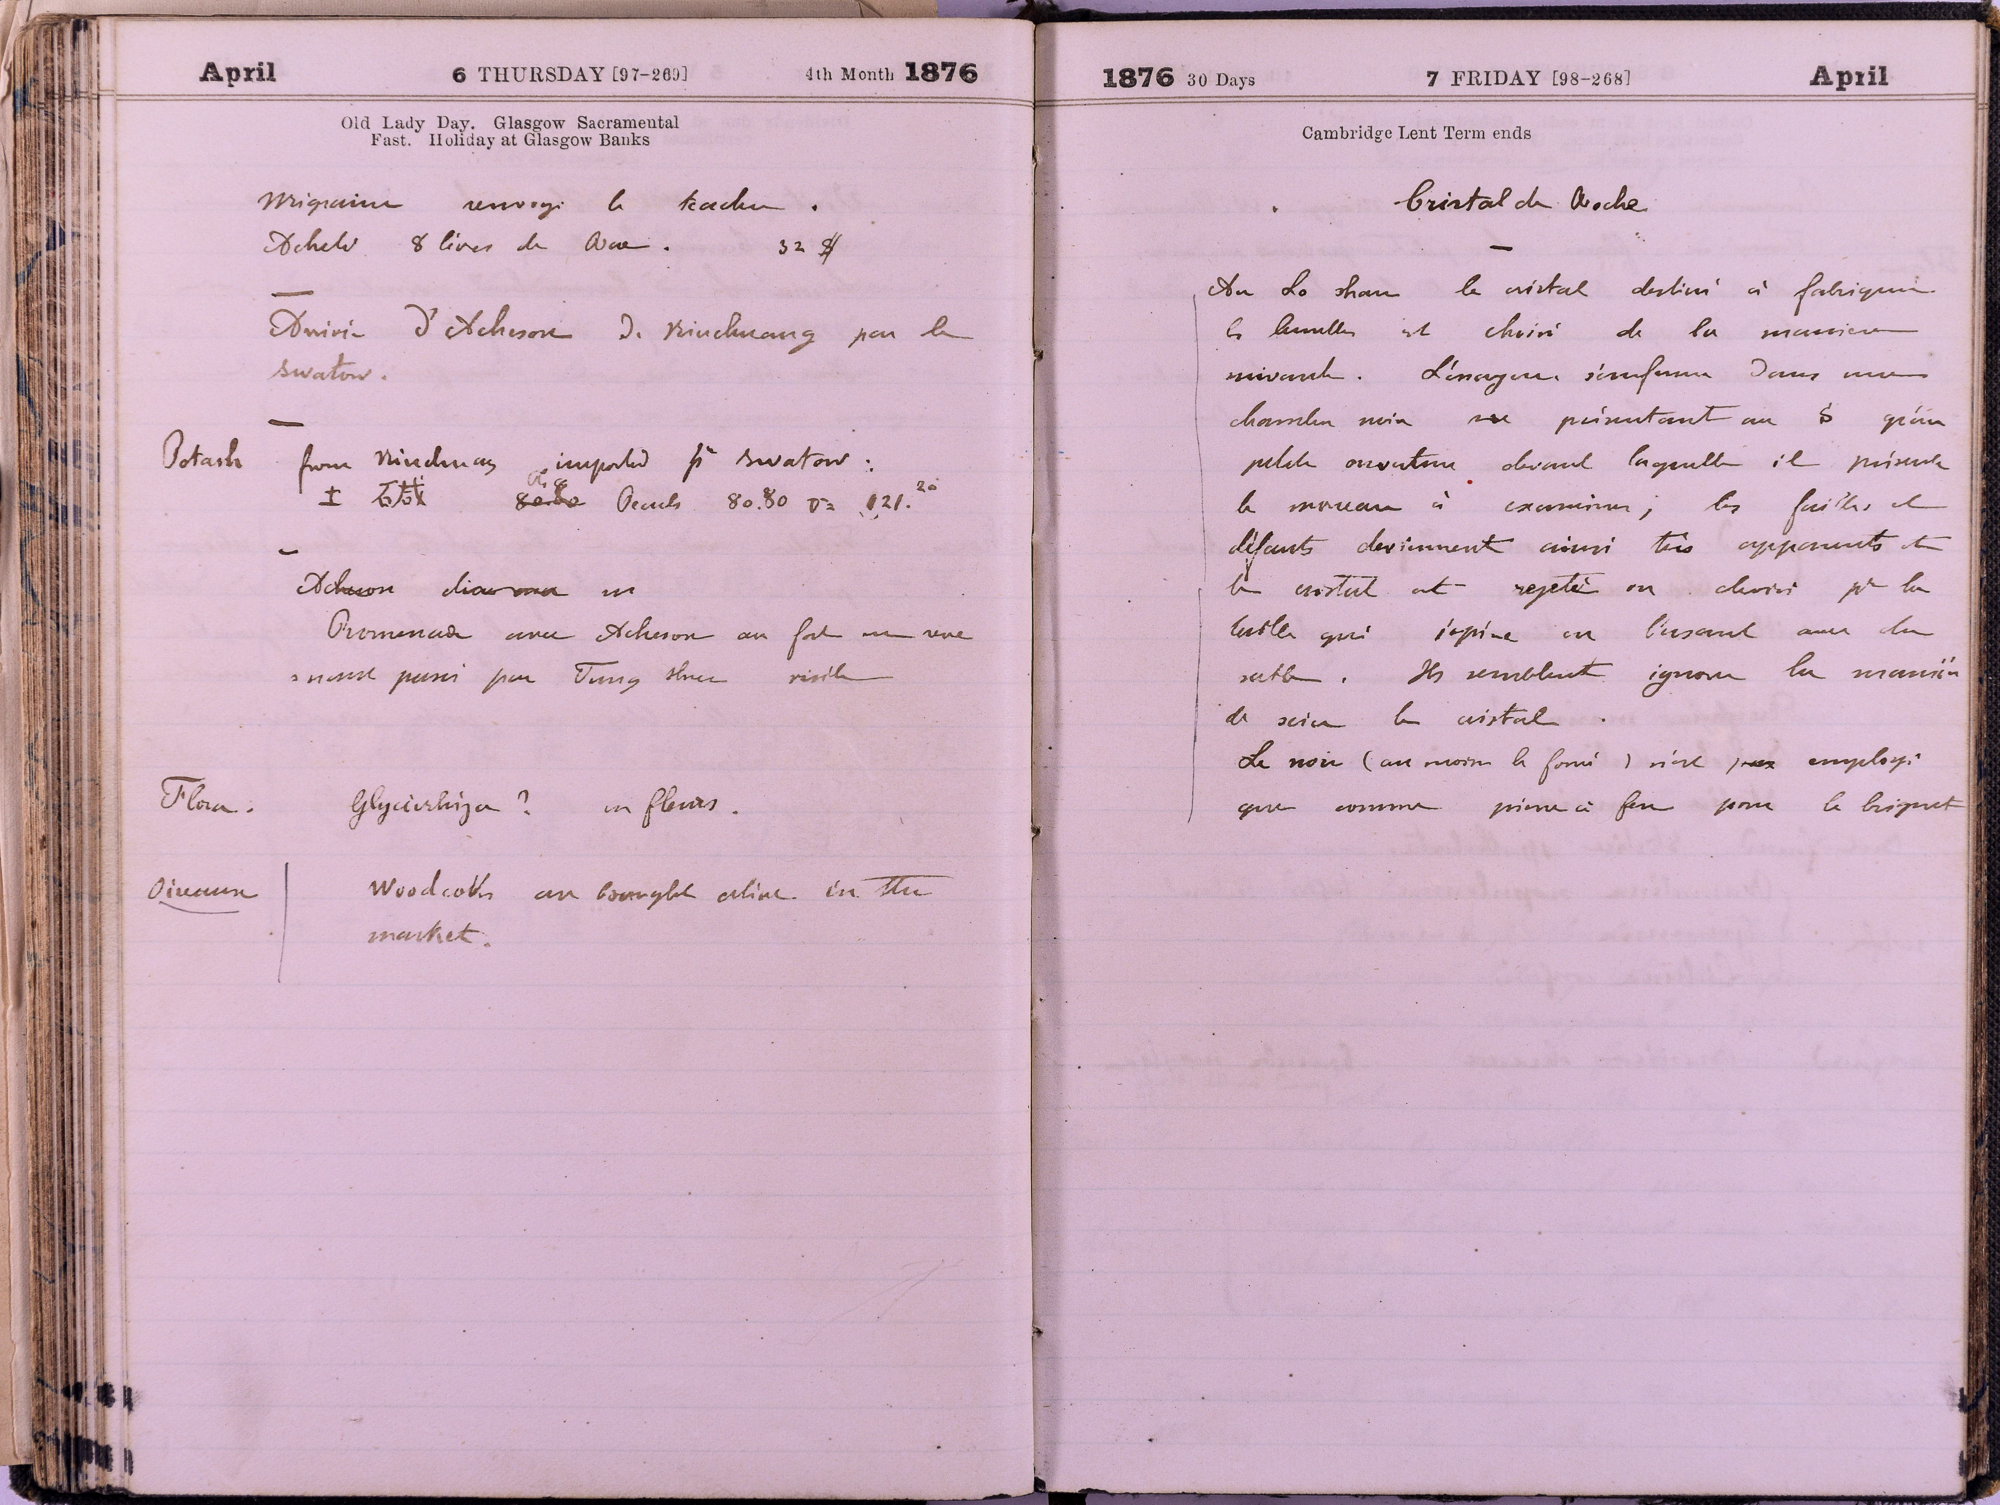 April 6 THURSDAY [97-269] 4th Month 1876
Old Lady Day. Glasgow Sacramental
Fast. Holiday at Glasgow Banks
Migraine renvoyé le teacher.
Acheté 8 livres de 32 $
Arrivée d'Acheson de Niuchuang par le
Swatow.
Potash from Niuchuang imported pr Swatow :
± 80.80 Peculs 80.80 v= 121.20
Acheson en
Promenade avec Acheson au fort en
passé par Tung visite
Flora. Glycirhiza ? en fleurs.
Oiseaux Woodcocks are brought alive in the
market.
1876 30 Days 7 FRIDAY [98-268] April
Cambridge Lent Term ends
Cristal de Roche
Au Lo shan le cristal destiné à fabriquer
les lunettes est choisi de la maniere
suivante. L'essayeur s'enferme dans une
chambre noire ne présentant au S qu'une
petite ouverture devant laquelle il présente
le morceau à examiner; les failles et
défauts deviennent ainsi très apparents et
le cristal est rejeté ou choisi pr la
taille qui s'opère en l'usant avec du
sable. Ils semblent ignorer la manière
de scier le cristal.
Le noir (au moins le foncé) n'est pas employé
que comme pierre à feu pour le briquet